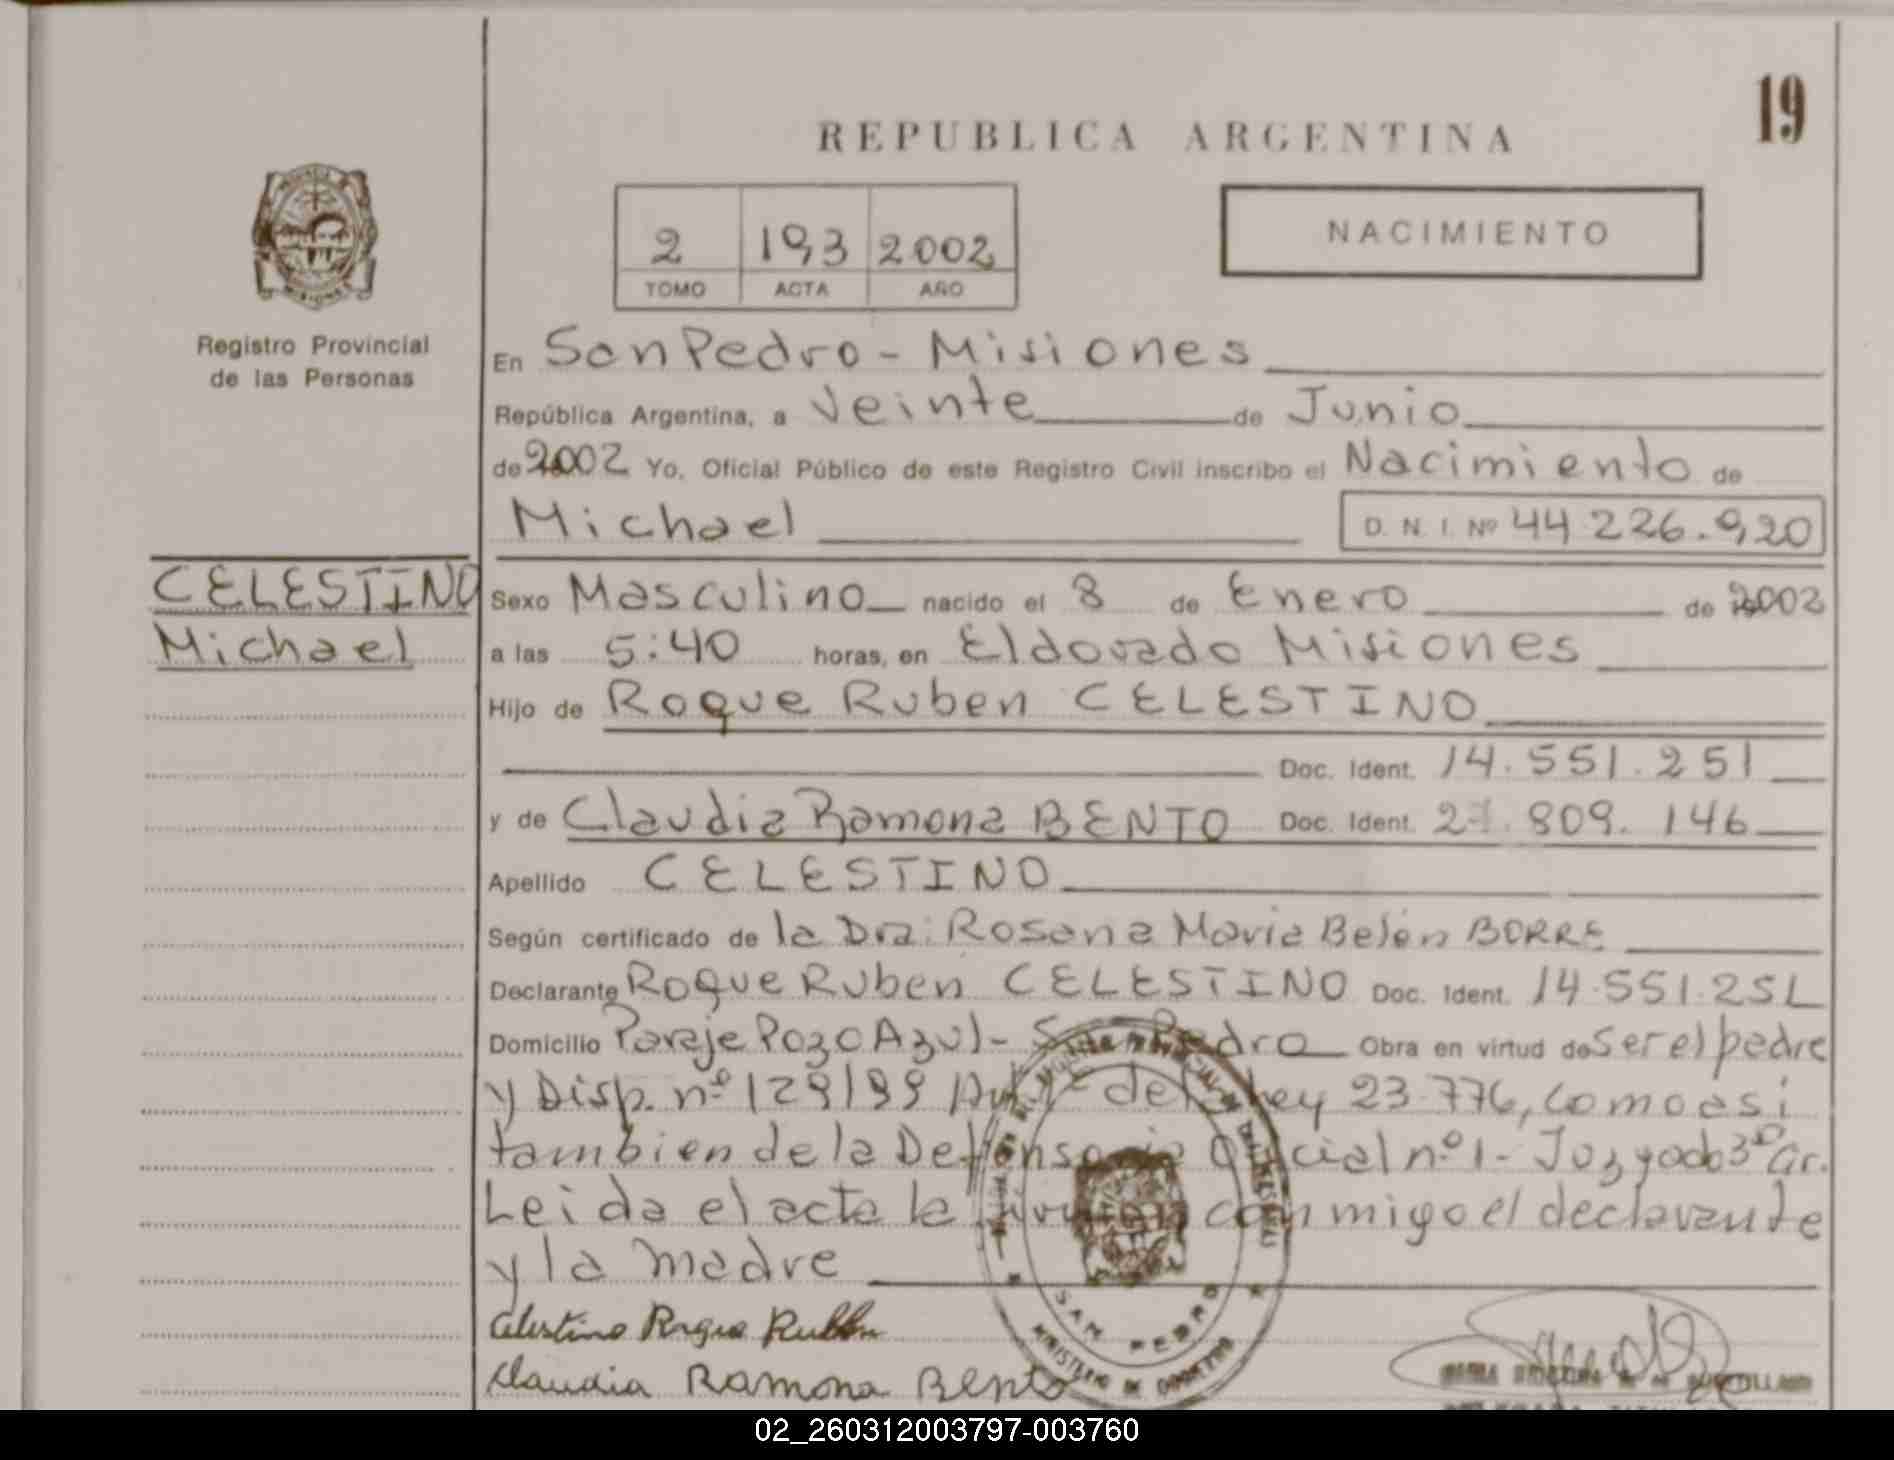 19
REPUBLICA ARGENTINA
2 193 2002
TOMO ACTA AÑO
NACIMIENTO
Registro Provincial
de las Personas
CELESTINO
Michael
En San Pedro - Misiones
República Argentina, a Veinte de Junio
de 2002 Yo, Oficial Público de este Registro Civil inscribo el Nacimiento de
Michael D. N. I. Nº 44.226.920
Sexo Masculino nacido el 8 de Enero de 2002
a las 5:40 horas, en Eldorado Misiones
Hijo de Roque Ruben CELESTINO
Doc. Ident. 14.551.251
y de Claudia Ramona BENTO Doc. Ident. 27.809.146
Apellido CELESTINO
Según certificado de la Dra: Rosana Maria Belén BORRE
Declarante Roque Ruben CELESTINO Doc. Ident. 14.551.251
Domicilio Paraje Pozo Azul - San Pedro Obra en virtud de Ser el padre
y Disp. nº 129/99 de Ley 23.776, como asi
tambien de la Defensoria Oficial nº 1 - Juzgado 3º Gr.
Leida el acta la firman conmigo el declarante
y la madre
Celestino Roque Ruben
Claudia Ramona Bento
SAN PEDRO
MINISTERIO DE GOBIERNO
02_260312003797-003760